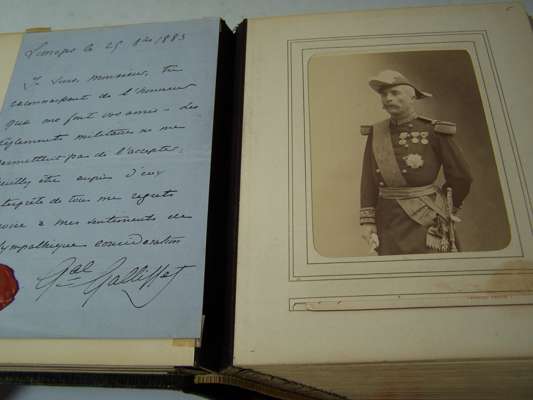 Limoges le 25 Xbre 1883
Je suis, monsieur, très
reconnaissant de l'honneur
que me font vos amis. Les
règlements militaires ne me
permettent pas de l'accepter.
Veuillez être auprès d'eux
interprète de tous mes regrets
croire à mes sentiments de
sympathique considération
Gal Galliffet